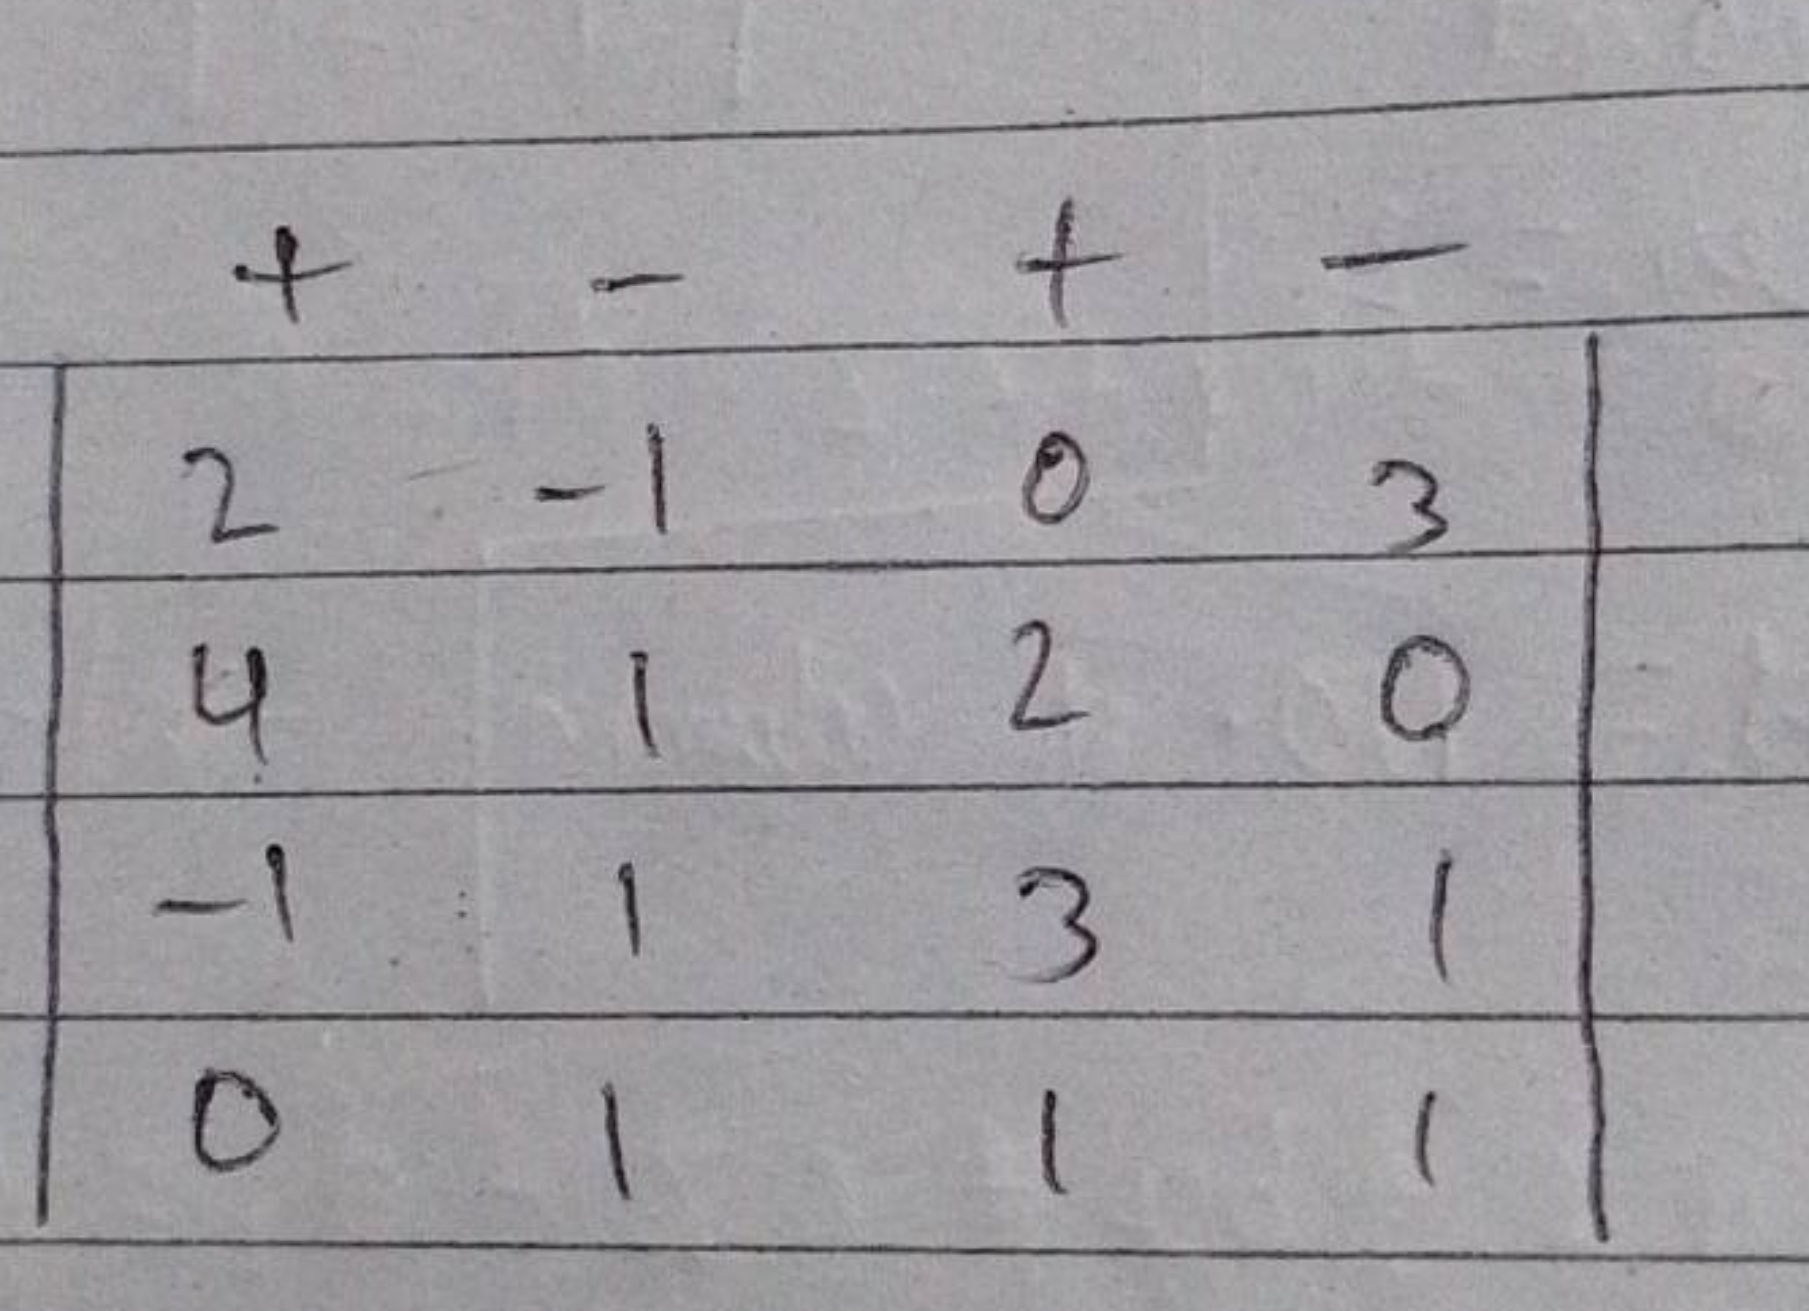 + - + -
2 -1 0 3
4 1 2 0
-1 1 3 1
0 1 1 1